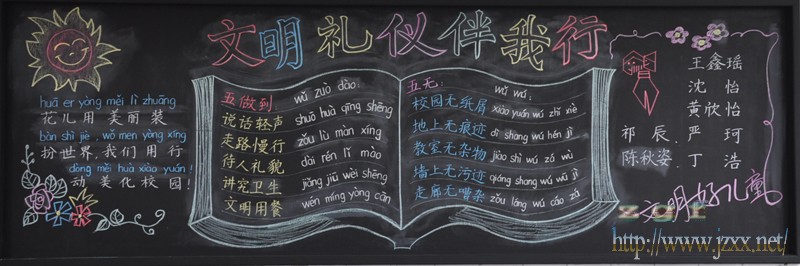 文明礼仪伴我行
huā er yòng měi lì zhuāng
花儿用美丽装
bàn shì jiè, wǒ men yòng xíng
扮世界,我们用行
dòng měi huà xiào yuán!
动美化校园!
五做到: wǔ zuò dào:
说话轻声 shuō huà qīng shēng
走路慢行 zǒu lù màn xíng
待人礼貌 dài rén lǐ mào
讲究卫生 jiǎng jiū wèi shēng
文明用餐 wén míng yòng cān
五无: wǔ wú:
校园无纸屑 xiào yuán wú zhǐ xiè
地上无痕迹 dì shang wú hén jì
教室无杂物 jiào shì wú zá wù
墙上无污迹 qiáng shang wú wū jì
走廊无嘈杂 zǒu láng wú cáo zá
王鑫瑶
沈怡
黄欣怡
祁辰 严珂
陈秋姿 丁浩
文明好儿童
http://www.jzxx.net/